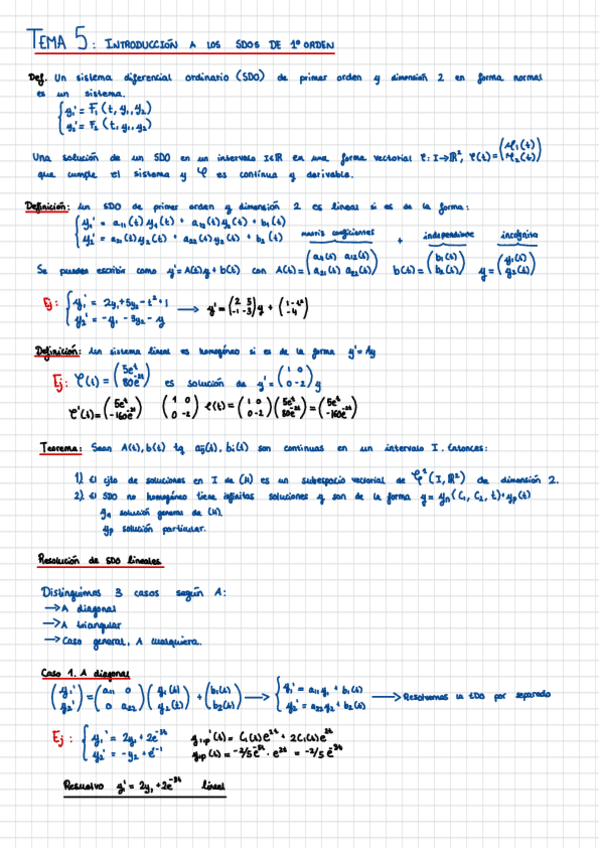 TEMA 5: INTRODUCCIÓN A LOS SDOS DE 1º ORDEN
Def. Un sistema diferencial ordinario (SDO) de primer orden y dimensión 2 en forma normal
es un sistema.
{ y₁' = F₁ (t, y₁, y₂)
y₂' = F₂ (t, y₁, y₂)
Una solución de un SDO en un intervalo I∈ℝ en una forma vectorial φ: I→ℝ², φ(t) = (φ₁(t) φ₂(t))
que cumple el sistema y φ es continua y derivable.
Definición: un SDO de primer orden y dimensión 2 es lineal si es de la forma:
{ y₁' = a₁₁(t) y₁(t) + a₁₂(t) y₂(t) + b₁(t)
y₂' = a₂₁(t) y₂(t) + a₂₂(t) y₂(t) + b₂(t)
matriz coeficientes + independiente incógnita
Se puedes escribir como y' = A(t)y + b(t) con A(t) = (a₁₁(t) a₁₂(t) a₂₁(t) a₂₂(t)) b(t) = (b₁(t) b₂(t)) y = (y₁(t) y₂(t))
Ej: { y₁' = 2y₁ + 5y₂ - t² + 1
y₂' = -y₁ - 3y₂ - 4
→ y' = (2 5 -1 -3) y + (1-t² -4)
Definición: un sistema lineal es homogéneo si es de la forma y' = Ay
Ej: φ(t) = (5eᵗ 80e⁻²ᵗ) es solución de y' = (1 0 0 -2) y
φ'(t) = (5eᵗ -160e⁻²ᵗ) (1 0 0 -2) φ(t) = (1 0 0 -2)(5eᵗ 80e⁻²ᵗ) = (5eᵗ -160e⁻²ᵗ)
Teorema: Sean A(t), b(t) tq aij(t), bi(t) son continuas en un intervalo I. Entonces:
1) El cjto de soluciones en I de (H) es un subespacio vectorial de φ¹(I, ℝ²) de dimensión 2.
2) El SDO no homogéneo tiene infinitas soluciones y son de la forma y = yₕ(C₁, C₂, t) + yp(t)
yₕ solución general de (H).
yp solución particular.
Resolución de SDO lineales
Distinguimos 3 casos según A:
→ A diagonal
→ A triangular
→ Caso general, A cualquiera.
Caso 1. A diagonal
(y₁' y₂') = (a₁₁ 0 0 a₂₂)(y₁(t) y₂(t)) + (b₁(t) b₂(t)) → { y₁' = a₁₁y₁ + b₁(t) y₂' = a₂₂y₂ + b₂(t) → Resolvemos la EDO por separado
Ej: { y₁' = 2y₁ + 2e⁻³ᵗ y₁p'(t) = C₁(t)e²ᵗ + 2C₁(t)e²ᵗ
y₂' = -y₂ + e⁻ᵗ y₁p(t) = -2/5 e⁻⁵ᵗ · e²ᵗ = -2/5 e⁻³ᵗ
Resuelvo y₁' = 2y₁ + 2e⁻³ᵗ lineal